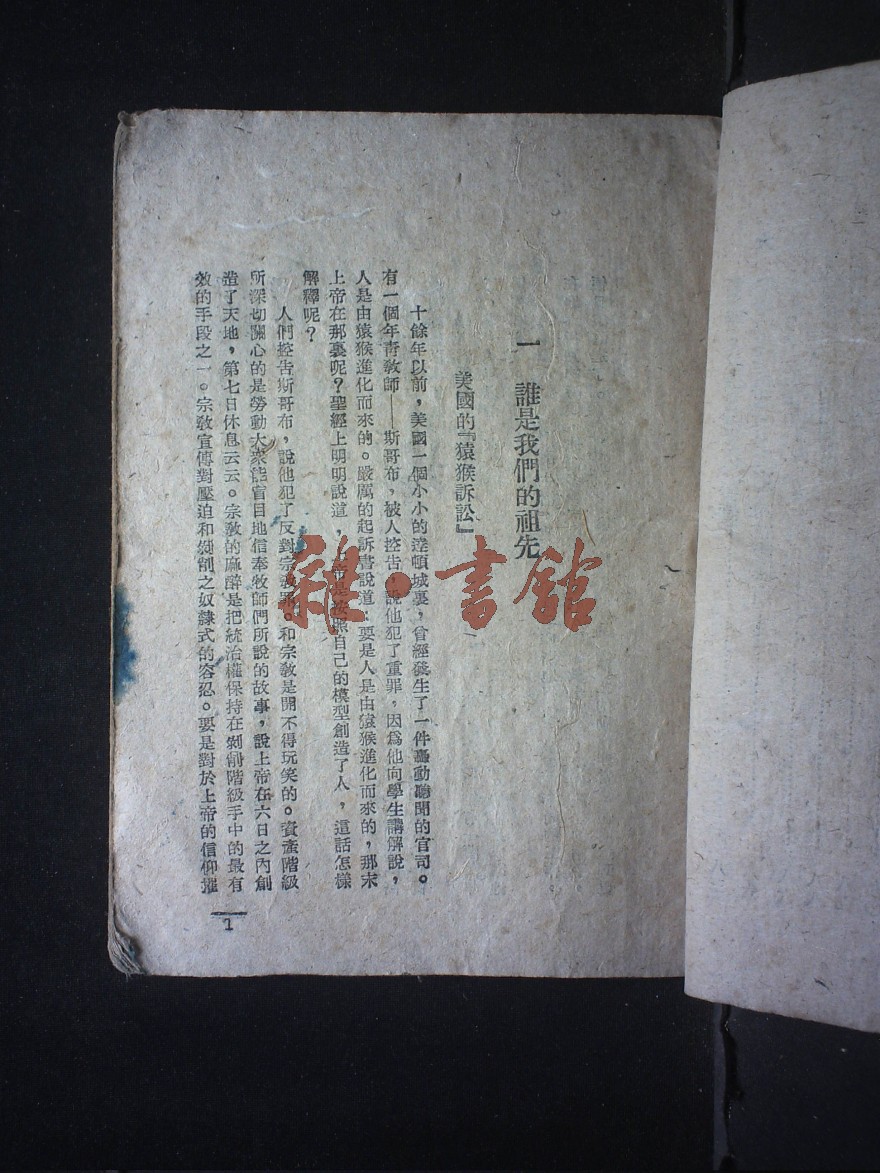 一 誰是我們的祖先
美國的『猿猴訴訟』
十餘年以前，美國一個小小的達頓城裏，曾經發生了一件轟動聽聞的官司。
有一個年青教師——斯哥布，被人控告，說他犯了重罪，因爲他向學生講解說，
人是由猿猴進化而來的。嚴厲的起訴書說道：要是人是由猿猴進化而來的，那末
上帝在那裏呢？聖經上明明說道，上帝是按照自己的模型創造了人，這話怎樣
解釋呢？
人們控告斯哥布，說他犯了反對宗教罪。和宗教是開不得玩笑的。資產階級
所深切關心的是勞動大衆能盲目地信奉牧師們所說的故事，說上帝在六日之內創
造了天地，第七日休息云云。宗教的麻醉是把統治權保持在剝削階級手中的最有
效的手段之一。宗教宣傳對壓迫和剝削之奴隸式的容忍。要是對於上帝的信仰摧
1
雜·書館